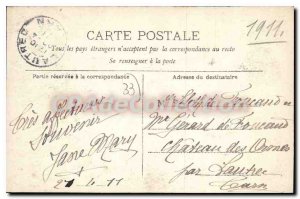 1911.
CARTE POSTALE
Tous les pays étrangers n'acceptent pas la correspondance au recto
Se renseigner à la poste
LAUTREC
Partie réservée à la correspondance
Adresse du destinataire
33
Très affectueux
Souvenir
Jane Mary
21.4.11
de Foucaud et
Me Gérard de Foucaud
Château des Ormes
par Lautrec
Tarn